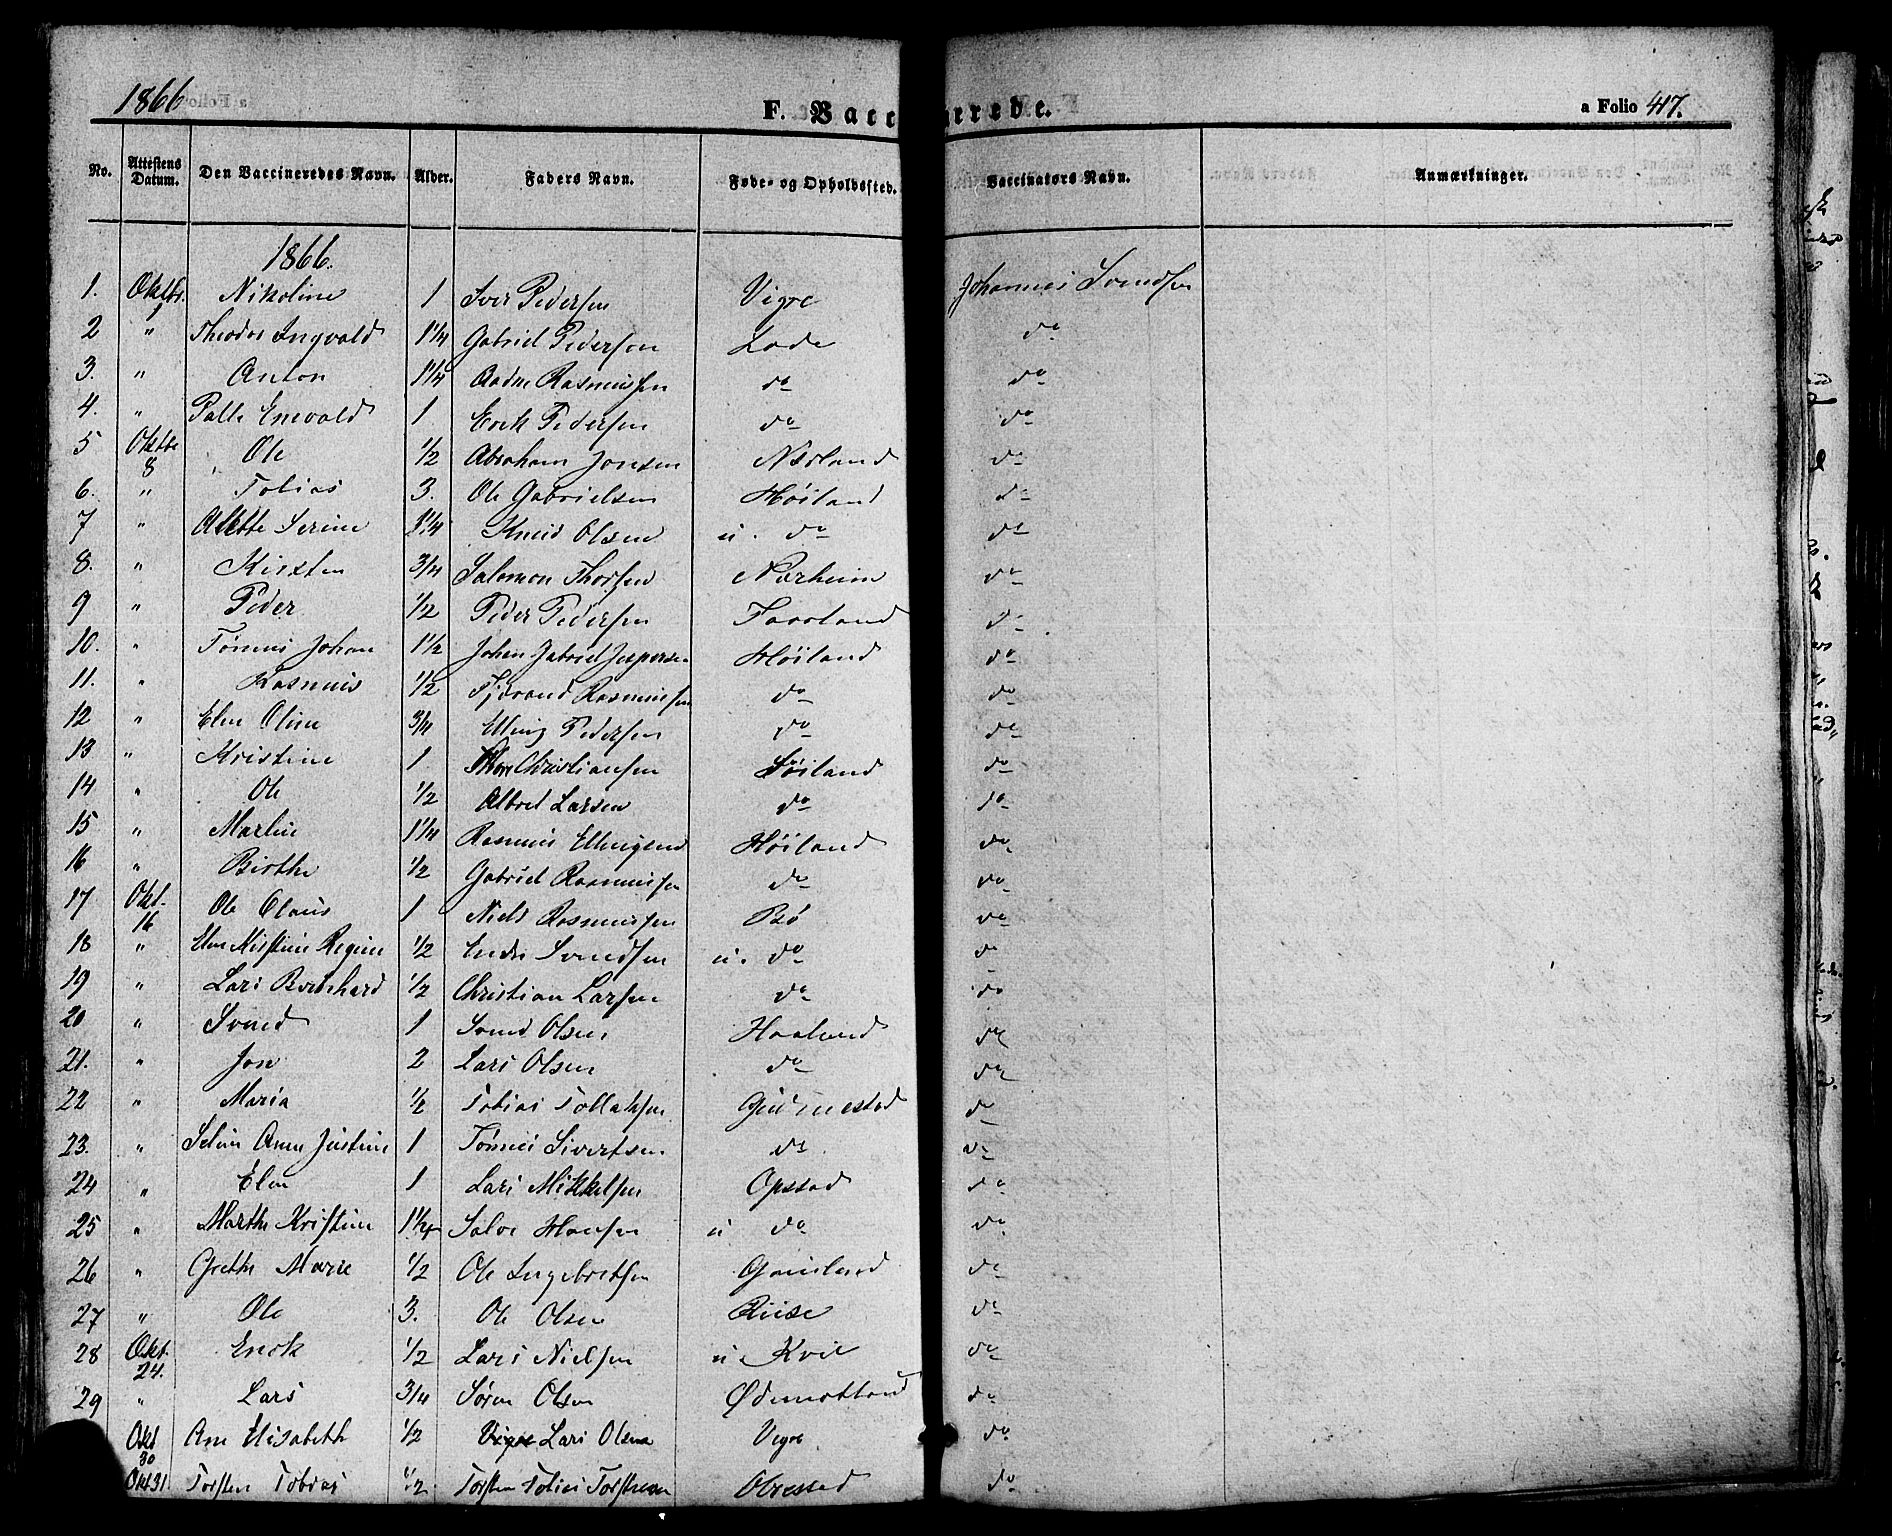 1866
F. Vacc
rrede.
a Folio 417.
No. Attestens Datum. Den Vaccineredes Navn. Alder. Faders Navn. Føde- og Opholdssted. Vaccinators Navn. Anmærkninger.
1866.
1. Oktbr. 9 Nikoline 1 Iver Pedersen Vigre Johannes Svendsen
2 " Theodor Ingvald 1 1/4 Gabriel Pedersen Lode do
3. " Anton 1 1/4 Aadne Rasmussen do do
4. " Palle Enevald 1 Erik Pedersen do do
5 Oktbr 8 Ole 1/2 Abraham Jonsen Nærland do
6. " Tobias 3. Ole Gabrielsen Høiland do
7 " Alette Serine 1 1/4 Knud Olsen u. do do
8. " Kirsten 3/4 Salomon Thorsen Nærheim do
9 " Peder 1/2 Peder Pedersen do
10. " Tønnes Johan 1 1/2 Johan Gabriel Jespersen Høiland do
11. " Rasmus 1/2 Tjerand Rasmussen do do
12 " Elen Oline 3/4 Elling Pedersen do do
13 " Kristine 1 Thore Christiansen Søiland do
14 " Ole 1/2 Albret Larsen do do
15 " Marlin 1 1/4 Rasmus Ellingsen Høiland do
16 " Birthe 1/2 Gabriel Rasmussen do do
17 Okt. 16 Ole Claus 1 Niels Rasmussen Bø do
18 " Elen Kistine Regine 1/2 Endre Svendsen u. do do
19 " Lars Bernhard 1/2 Christian Larsen do do
20 " Svend 1 Svend Olsen Haaland do
21. " Jon 2 Lars Olsen do do
22 " Maria 1/2 Tobias Tollaksen Gudmestad do
23. " Seline Anne Justine 1 Tønnes Sivertsen do do
24 " Elen 1 Lars Mikkelsen Opstad do
25 " Marthe Kristine 1 1/4 Salve Hansen u do do
26 " Grethe Marie 1/2 Ole Ingebretsen do
27 " Ole 3. Ole Olsen do
28 Okt. 24. Enok 1/2 Lars Nielsen u. Kvie do
29 " Lars 3/4 Søren Olsen Ødemotland do
Okt 30 Ane Elisabeth 1/2 Lars Olsen Vigre do
Okt 31 Torsten Tobias 1/2 Torsten Tobias Torstensen Obrestad do